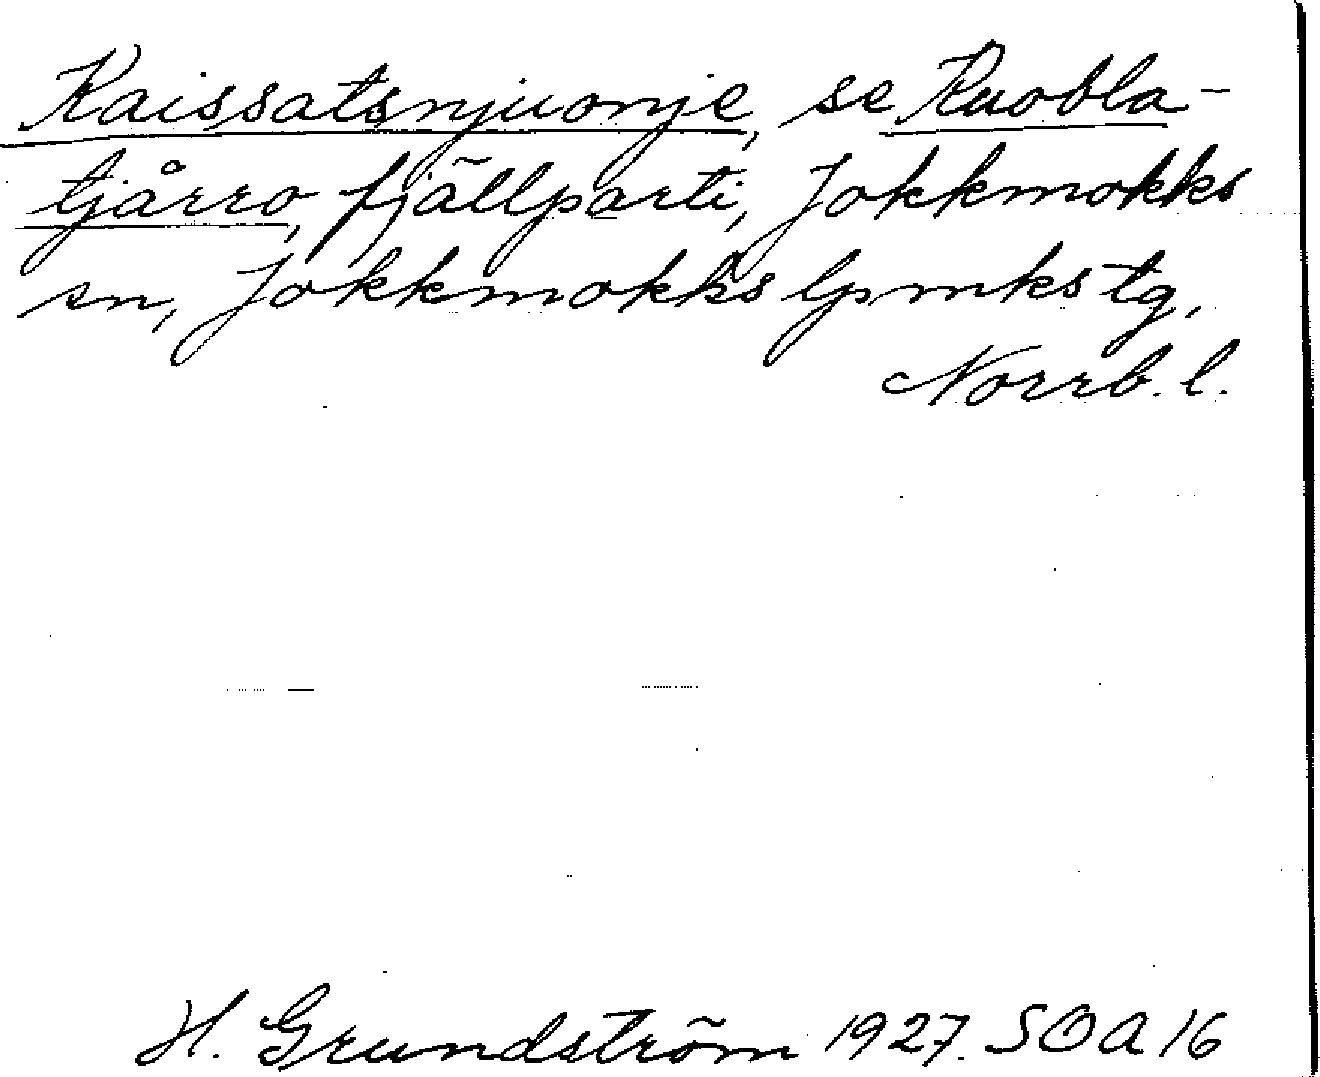 Kaissatsnjuonje, se Ruobla-
tjårro, fjällparti, Jokkmokks
sn, Jokkmokks lpmks tg,
Norrb. l.
H. Grundström 1927. SOA 16